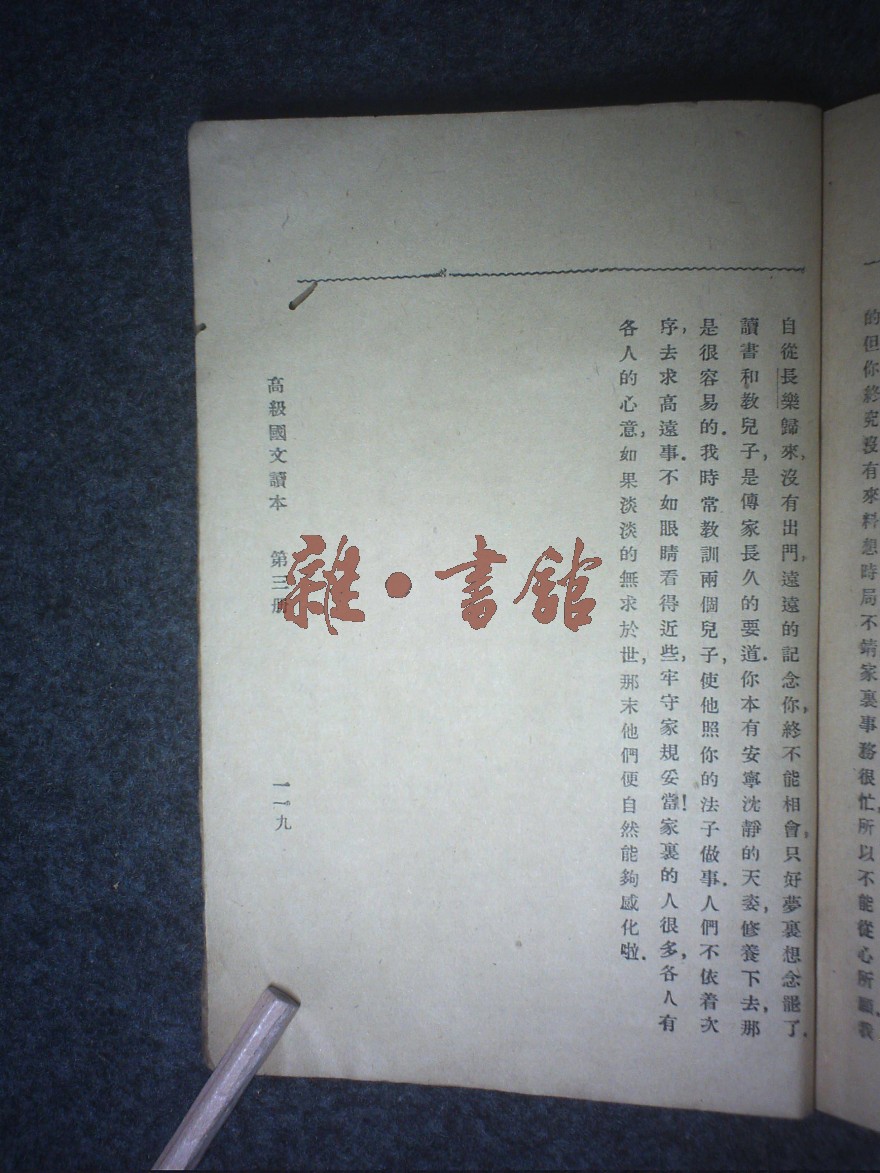 的但你終究沒有來料想時局不靖家裏事務很忙,所以不能從心所願.我
自從長樂歸來,沒有出門,遠遠的記念你,終不能相會,只好夢裏想念罷了.
讀書和教兒子,是傳家長久的要道.你本有安寧沈靜的天姿,修養下去,那
是很容易的.我時常教訓兩個兒子,使他照你的法子做事.人們不依着次
序,去求高遠事.不如眼睛看得近些,牢守家規妥當!家裏的人很多,各人有
各人的心意,如果淡淡的無求於世,那末他們便自然能夠感化啦.
高級國文讀本 第三册
一一九
雜·書館